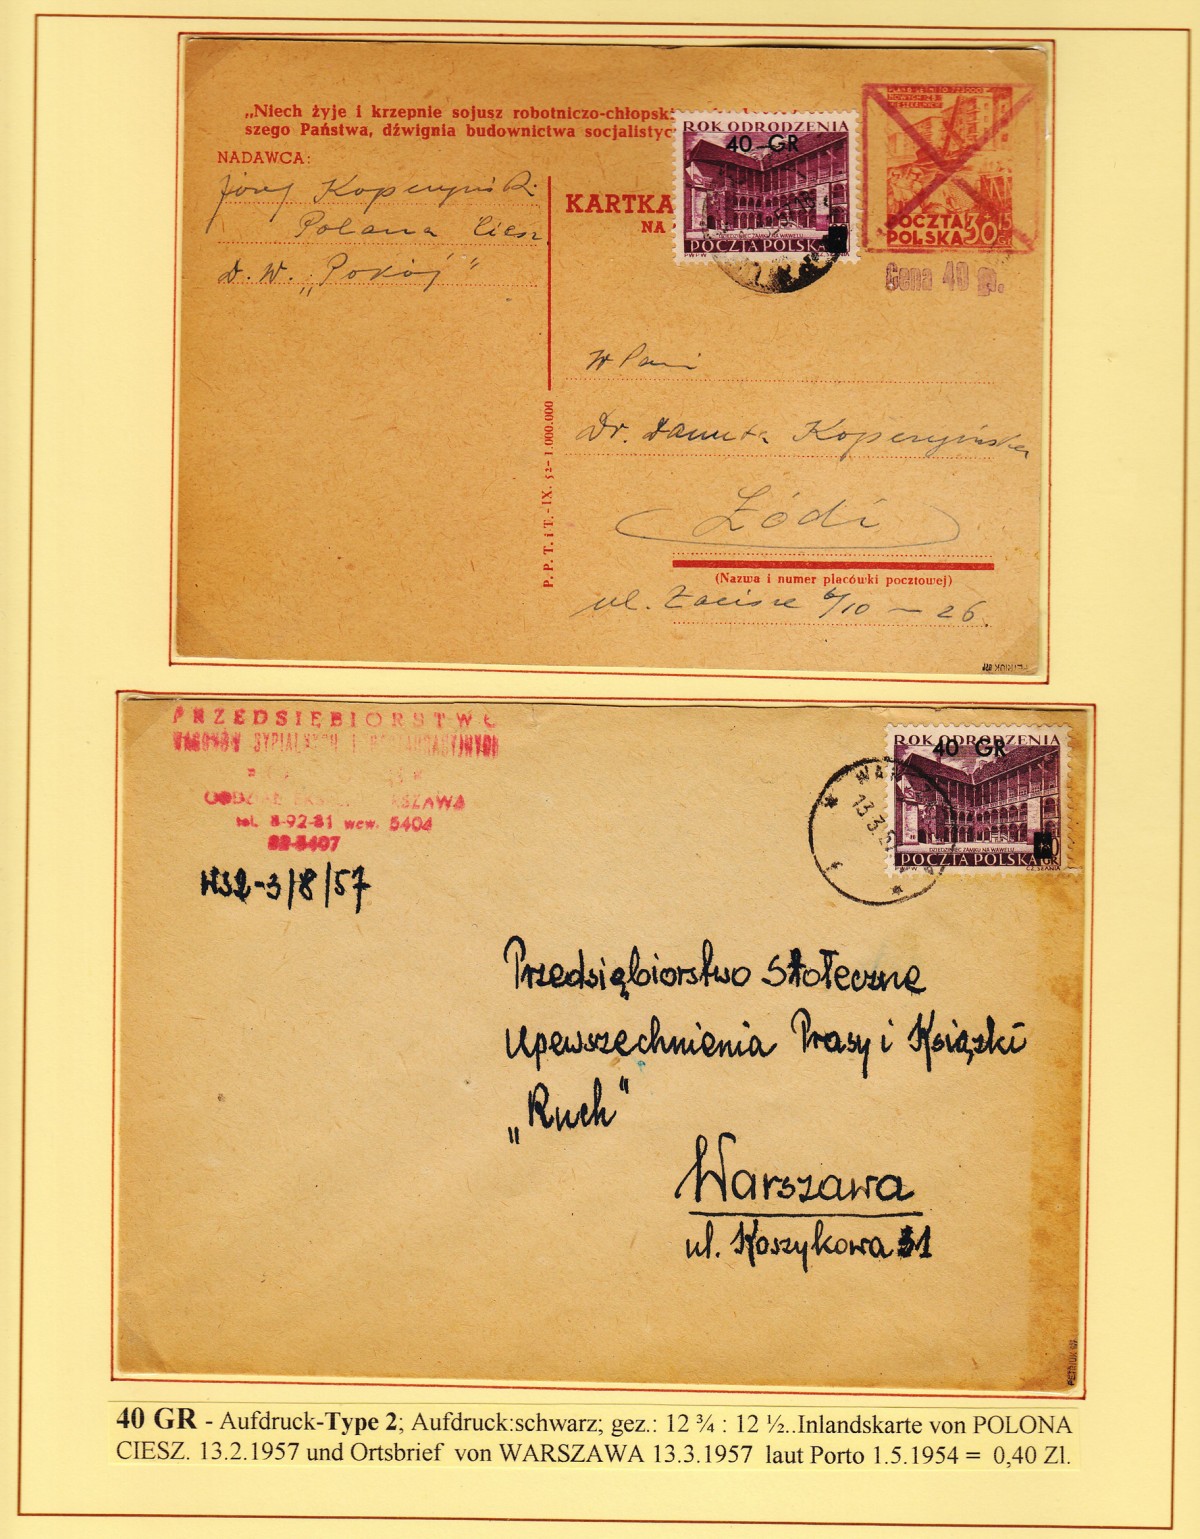 „Niech żyje i krzepnie sojusz robotniczo-chłopski
szego Państwa, dźwignia budownictwa socjalistyc
NADAWCA:
Józef Koperzyński
Polana Ciesz.
D. W. „Pokój"
KARTKA
NA
ROK ODRODZENIA
40 GR
DZIEDZINIEC ZAMKU NA WAWELU
POCZTA POLSKA
PWPW
PLAN 6-LETNI TO 723000
NOWYCH IZB
MIESZKALNYCH
POCZTA
POLSKA 30
Cena 40 gr.
W Pani
Dr. Danuta Koperzyńska
Łódź
(Nazwa i numer placówki pocztowej)
ul. Zacisze 6/10 — 26.
P. P. T. i T. - IX. 52 - 1.000.000
PRZEDSIĘBIORSTWO
WAGONÓW SYPIALNYCH I RESTAURACYJNYCH
tel. 8-92-81 wew. 5404
82-5407
WS2-3/8/57
ROK ODRODZENIA
40 GR
DZIEDZINIEC ZAMKU NA WAWELU
POCZTA POLSKA
GR
PWPW
CZ.SŁANIA
13.3.57
Przedsiębiorstwo Stołeczne
Upowszechnienia Prasy i Książki
„Ruch"
Warszawa
ul. Koszykowa 31
PETRIUK W.
40 GR - Aufdruck-Type 2; Aufdruck:schwarz; gez.: 12 ¾ : 12 ½..Inlandskarte von POLONA
CIESZ. 13.2.1957 und Ortsbrief von WARSZAWA 13.3.1957 laut Porto 1.5.1954 = 0,40 Zl.